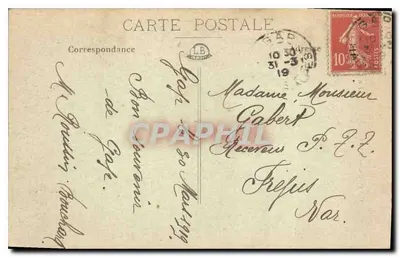 CARTE POSTALE
Correspondance
LB
GAP
10 30
31 - 3
19
10
Gap le 30 Mars 1919
Bon Souvenir
de Gap.
M. Roussin
Madame Monsieur
Gabert
Receveur P.T.T.
Fréjus
Var.
CPARAMA